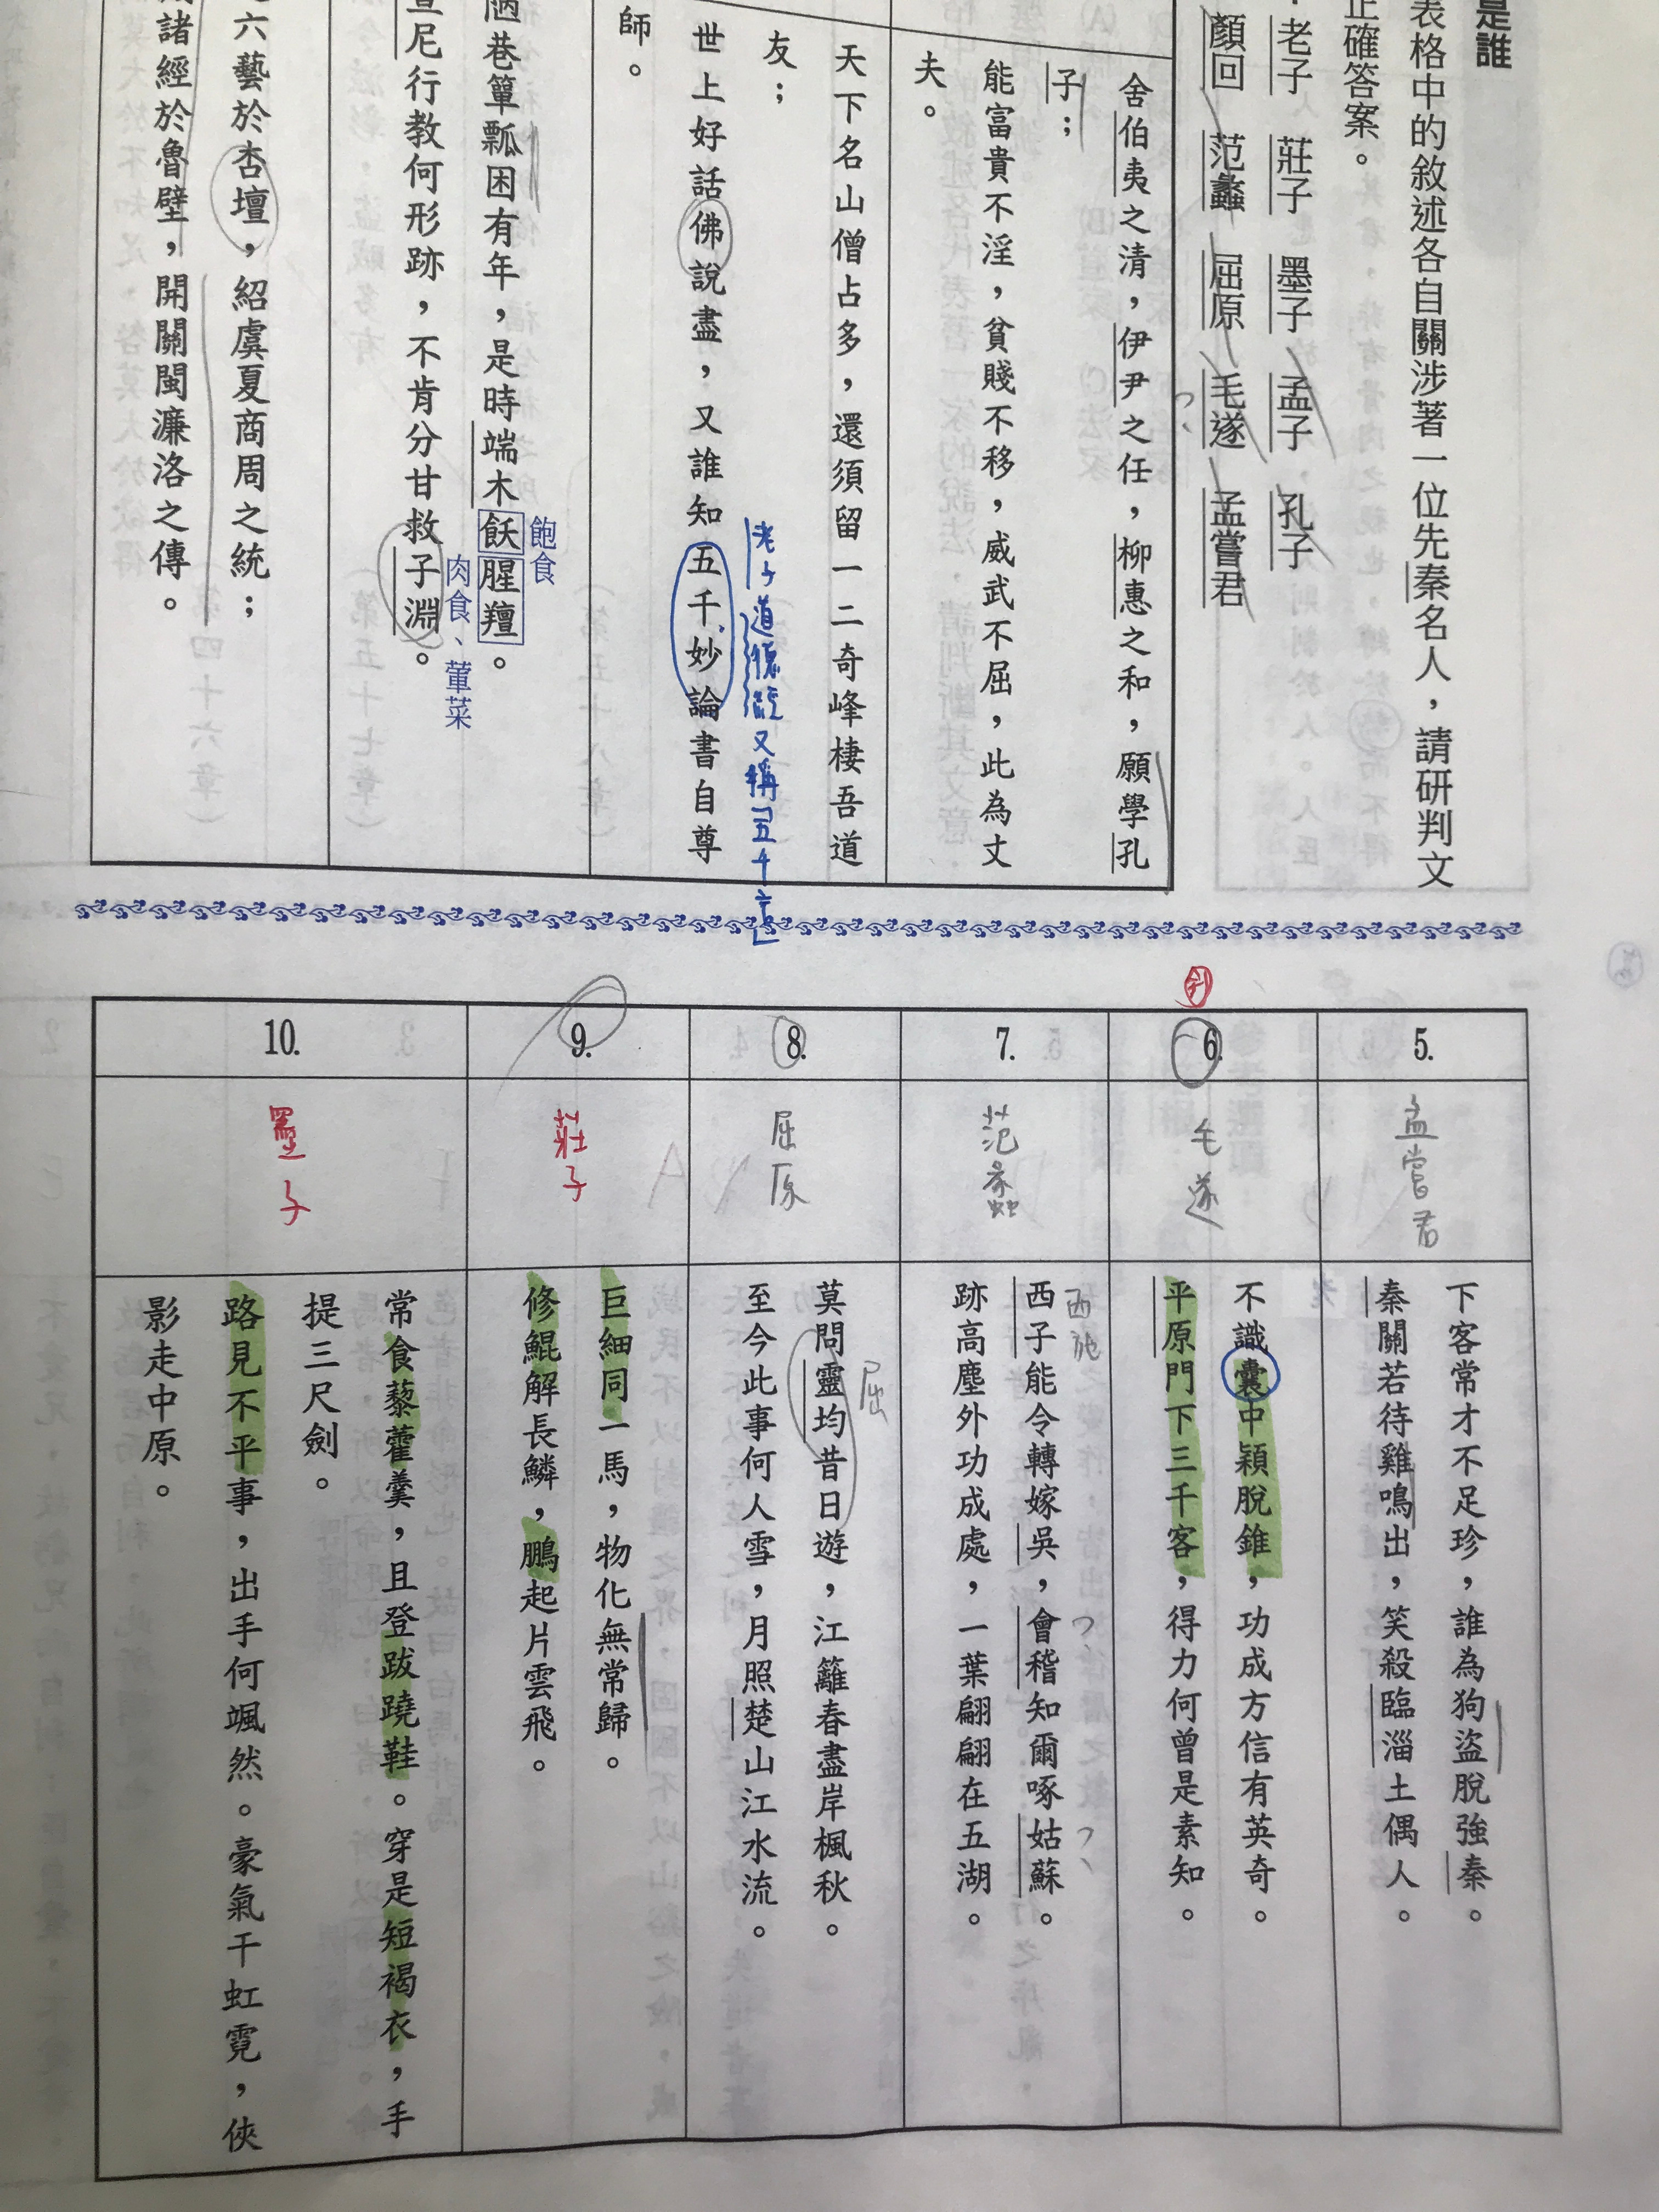 是誰
表格中的敘述各自關涉著一位先秦名人，請研判文
正確答案。
老子 莊子 墨子 孟子 孔子
顏回 范蠡 屈原 毛遂 孟嘗君
舍伯夷之清，伊尹之任，柳惠之和，願學孔
子；
能富貴不淫，貧賤不移，威武不屈，此為丈
夫。
天下名山僧占多，還須留一二奇峰棲吾道
友；
老子道德經又稱「五千言」
世上好話佛說盡，又誰知五千妙論書自尊
師。
飽食
陋巷簞瓢困有年，是時端木飫腥羶。
肉食、葷菜
尼行教何形跡，不肯分甘救子淵。
六藝於杏壇，紹虞夏商周之統；
諸經於魯壁，開關閩濂洛之傳。
5.
孟嘗君
下客常才不足珍，誰為狗盜脫強秦。
秦關若待雞鳴出，笑殺臨淄土偶人。
6.
毛遂
不識囊中穎脫錐，功成方信有英奇。
平原門下三千客，得力何曾是素知。
7.
范蠡
西施
西子能令轉嫁吳，會稽知爾啄姑蘇。
跡高塵外功成處，一葉翩翩在五湖。
8.
屈原
屈
莫問靈均昔日遊，江籬春盡岸楓秋。
至今此事何人雪，月照楚山江水流。
9.
莊子
巨細同一馬，物化無常歸。
修鯤解長鱗，鵬起片雲飛。
10.
墨子
常食藜藿羹，且登跋蹺鞋。穿是短褐衣，手
提三尺劍。
路見不平事，出手何颯然。豪氣干虹霓，俠
影走中原。